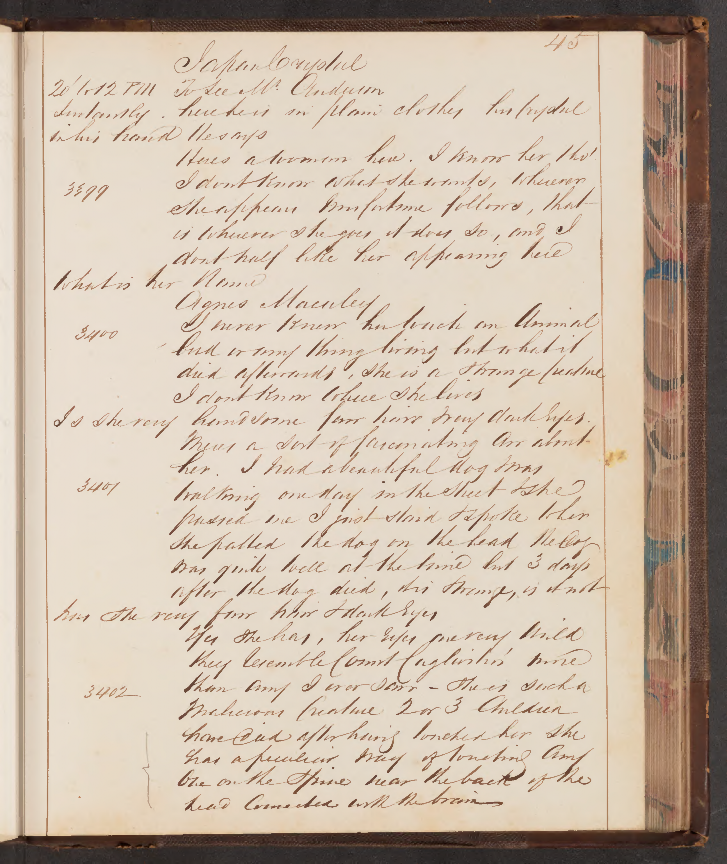 45
Japan Crystal
20 to 12 PM To See Mr. Anderson
Instantly. here he is in plain clothes his Crystal
in his hand He says
Heres a woman here. I know her, tho'
3399 I dont know what she wants, wherever
She appears misfortune follows, that
is wherever she goes it does so, and I
dont half like her appearing here
What is her Name
Agnes Macaley
3400 I never knew her touch an Animal
bird or any thing living but what it
died afterwards, She is a Strange Creature
I dont know where she lives
Is she very handsome fair hair & very dark Eyes.
Theres a sort of fascinating air about
her. I had a beautiful dog & was
3401 walking one day in the Street & She
passed me I just stood & spoke to her
She patted the dog on the head The dog
was quite well at the time but 3 days
after the dog died, tis strange, is it not
has she very fair hair & dark Eyes
Yes she has, her Eyes are very Wild
they resemble Count Cagliostro's more
3402 than any I ever saw - She is such a
Malicious Creature 2 or 3 Children
have died after having touched her She
has a peculiar way of touching Any
One on the Spine near the back of the
head Connected with the brain